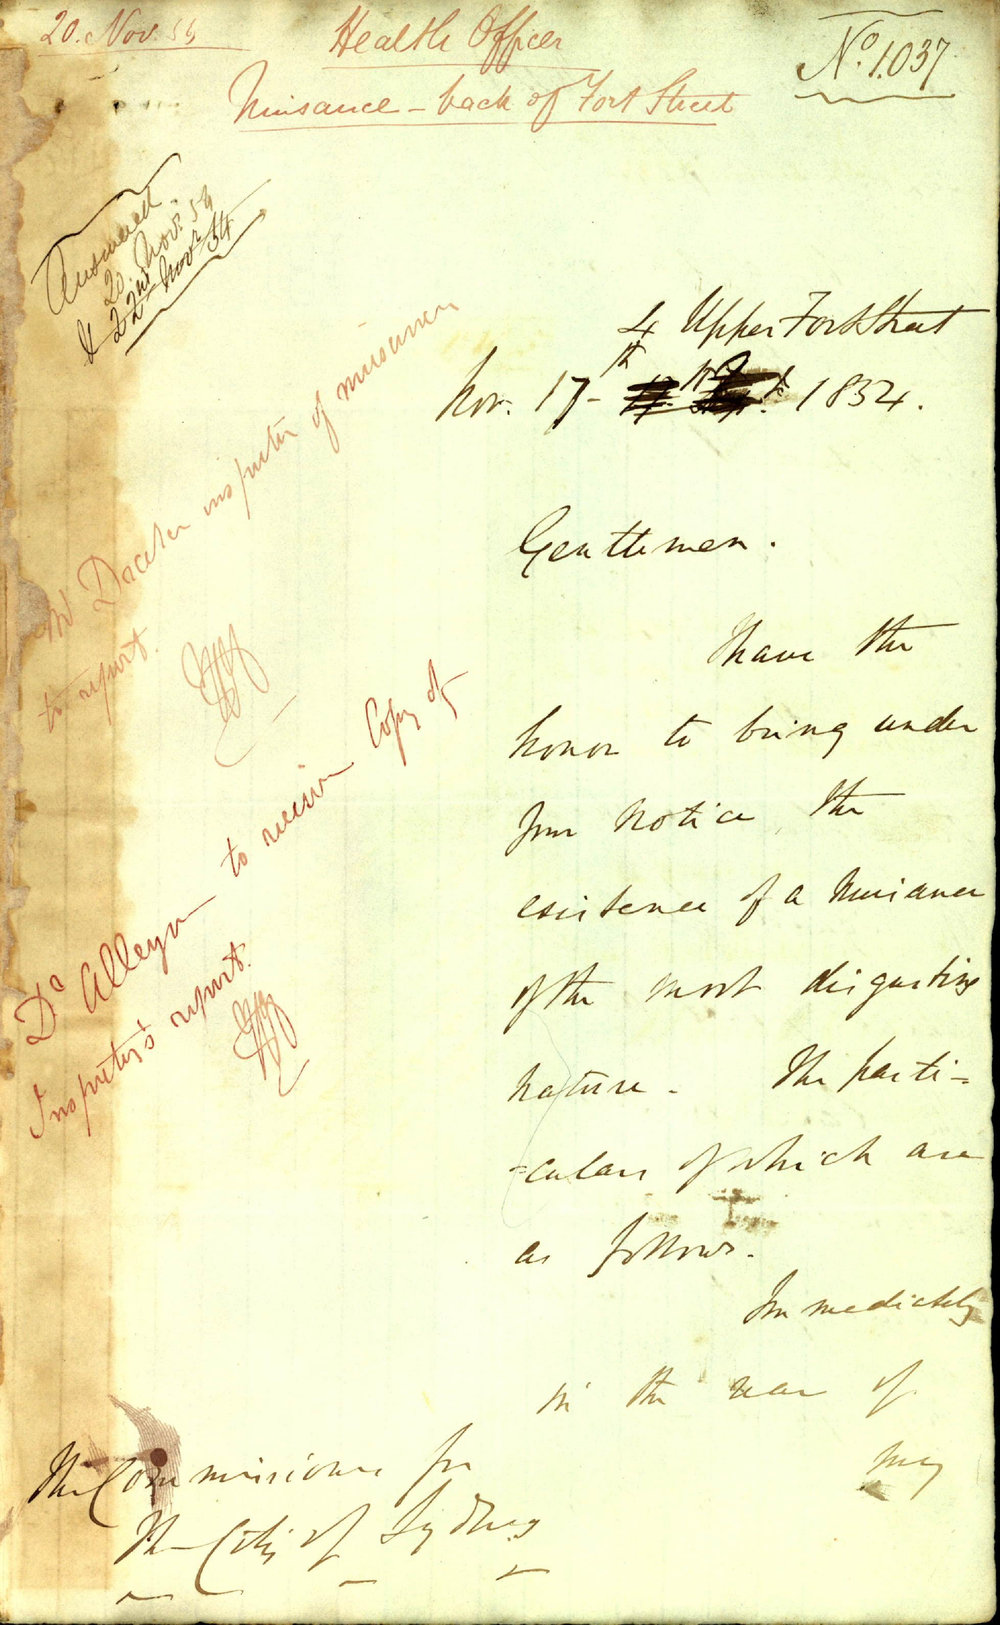 20. Nov. 54
Health Officer
No. 1.037
Nuisance - back of Fort Street
Answered
20. Novr. 54
& 22nd Novr 54
4 Upper Fort Street
Nov. 17th 1854.
Gentlemen.
I have the
honor to bring under
your notice the
existence of a Nuisance
of the most disgusting
nature - The parti=
=culars of which are
as follows.
Immediately
in the rear of
my
The Commissioners for
The City of Sydney
Mr inspector of nuisances
to report.
Dr Alleyn to receive Copy of
Inspector's report.